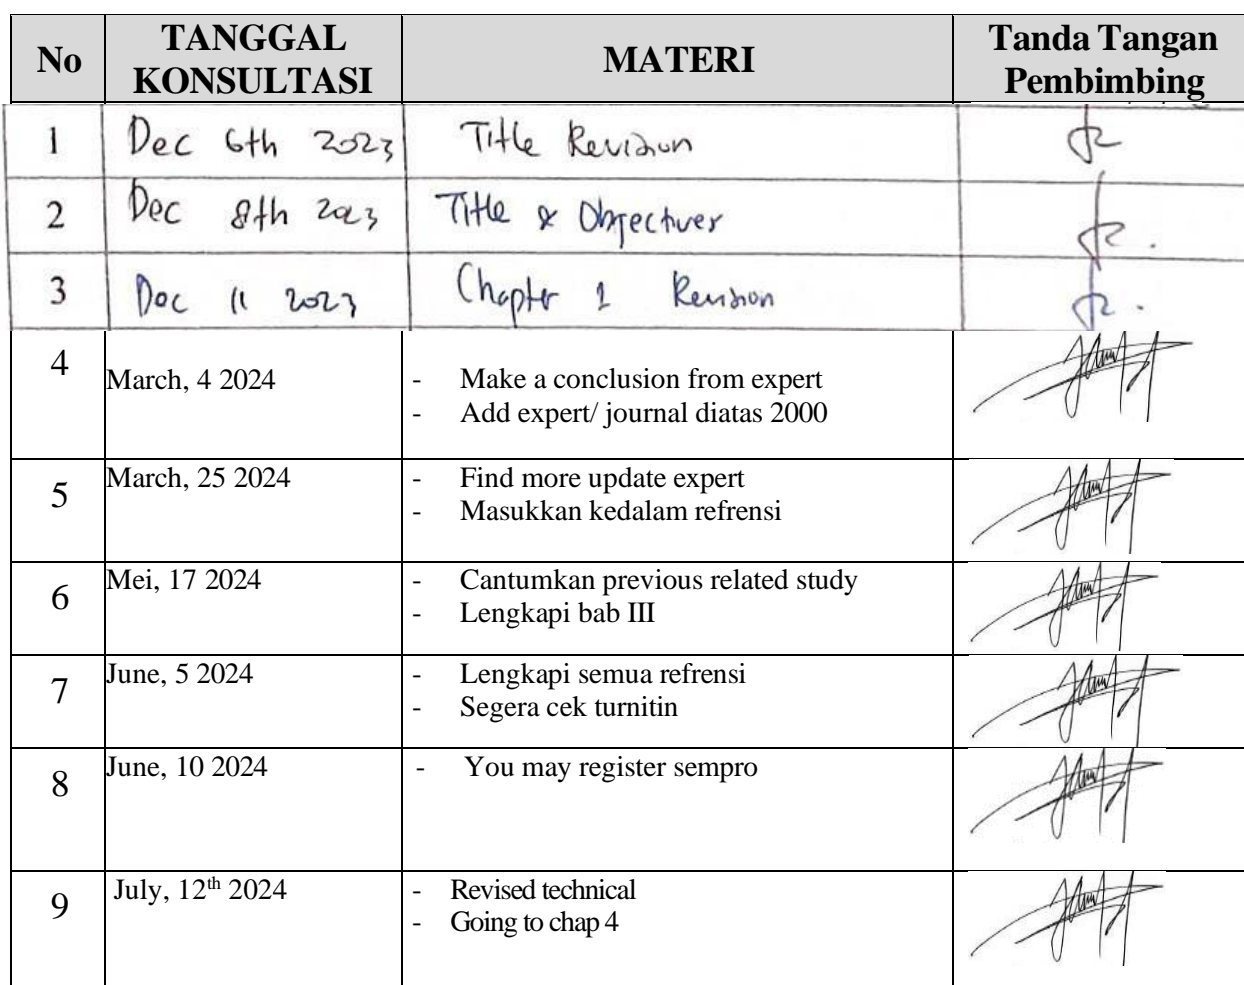 No TANGGAL KONSULTASI MATERI Tanda Tangan Pembimbing
1 Dec 6th 2023 Title Revision
2 Dec 8th 2023 Title & Objectives
3 Dec 11 2023 Chapter 1 Revision
4 March, 4 2024 - Make a conclusion from expert
- Add expert/ journal diatas 2000
5 March, 25 2024 - Find more update expert
- Masukkan kedalam refrensi
6 Mei, 17 2024 - Cantumkan previous related study
- Lengkapi bab III
7 June, 5 2024 - Lengkapi semua refrensi
- Segera cek turnitin
8 June, 10 2024 - You may register sempro
9 July, 12th 2024 - Revised technical
- Going to chap 4